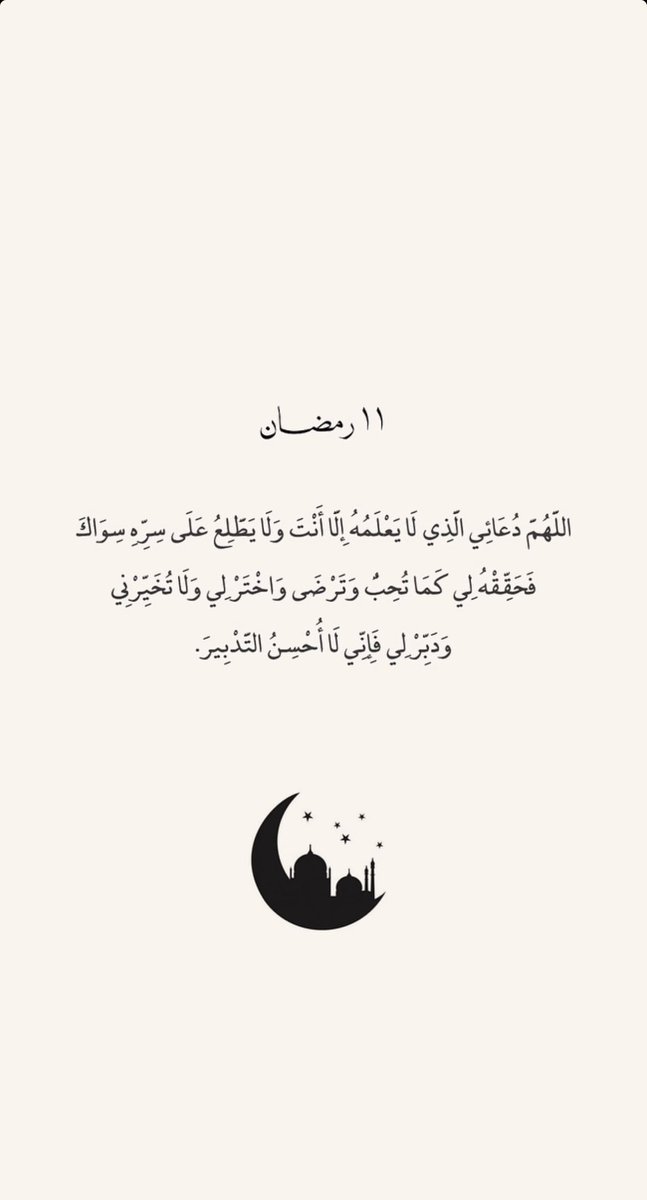 ١١ رمضــان
اللّهُمّ دُعَائِي الّذِي لَا يَعْلَمُهُ إِلّا أَنْتَ وَلَا يَطّلِعُ عَلَى سِرِّهِ سِوَاكَ
فَحَقِّقْهُ لِي كَمَا تُحِبٌ وَتَرْضَى وَاخْتَرْ لِي وَلَا تُخَيِّرْنِي
وَدَبِّرْ لِي فَإِنّي لَا أُحْسِنُ التّدْبِيرَ.